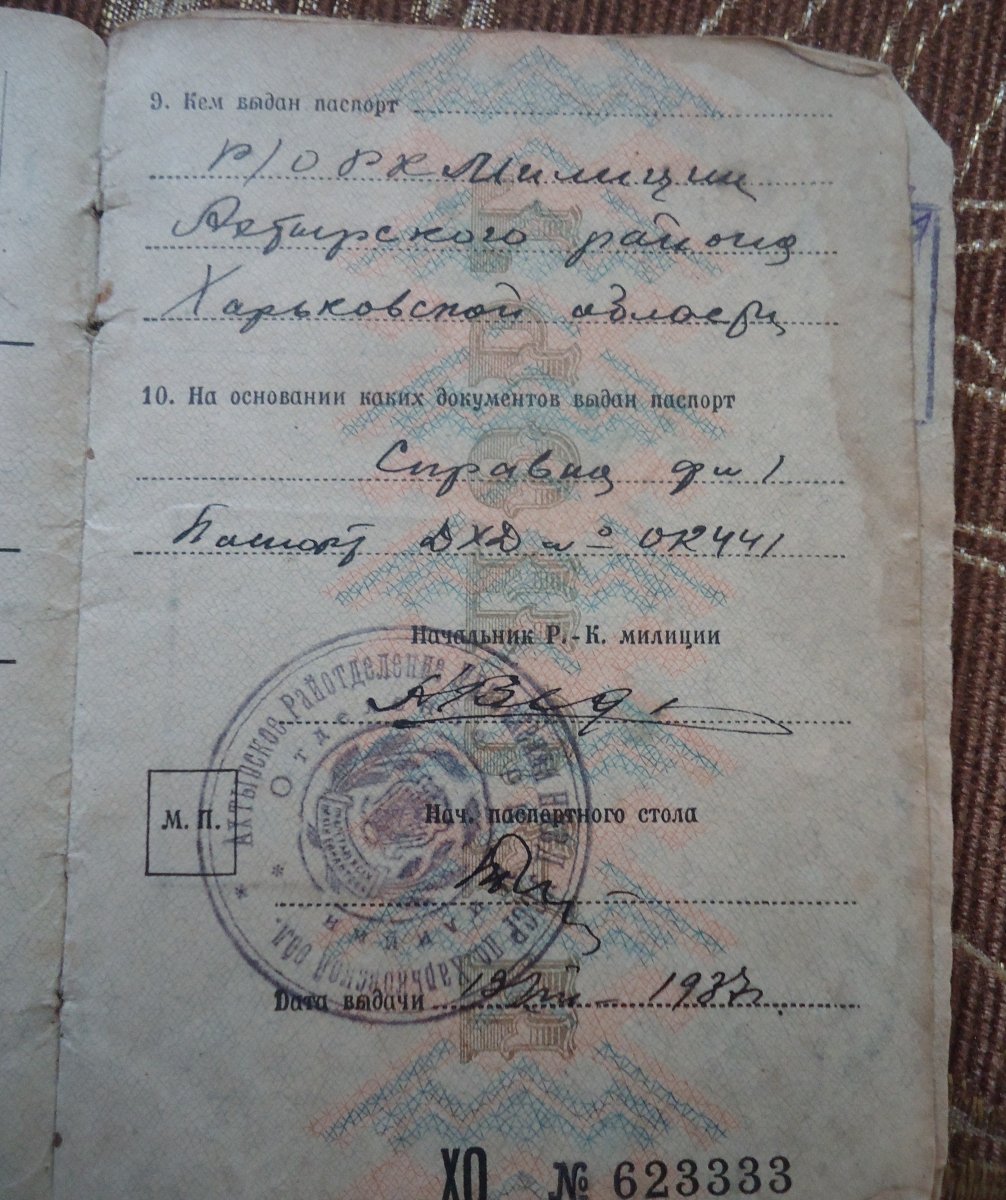 9. Кем выдан паспорт
Р/О РК Милиции
Ахтырского района
Харьковской области
10. На основании каких документов выдан паспорт
Справка фм 1
Паспорт ДХД № 012441
Начальник Р.-К. милиции
М. П.
АХТЫРСКОЕ РАЙОТДЕЛЕНИЕ НКВД УССР по Харьковской обл.
Нач. паспортного стола
Дата выдачи 19 1937
ХО № 623333